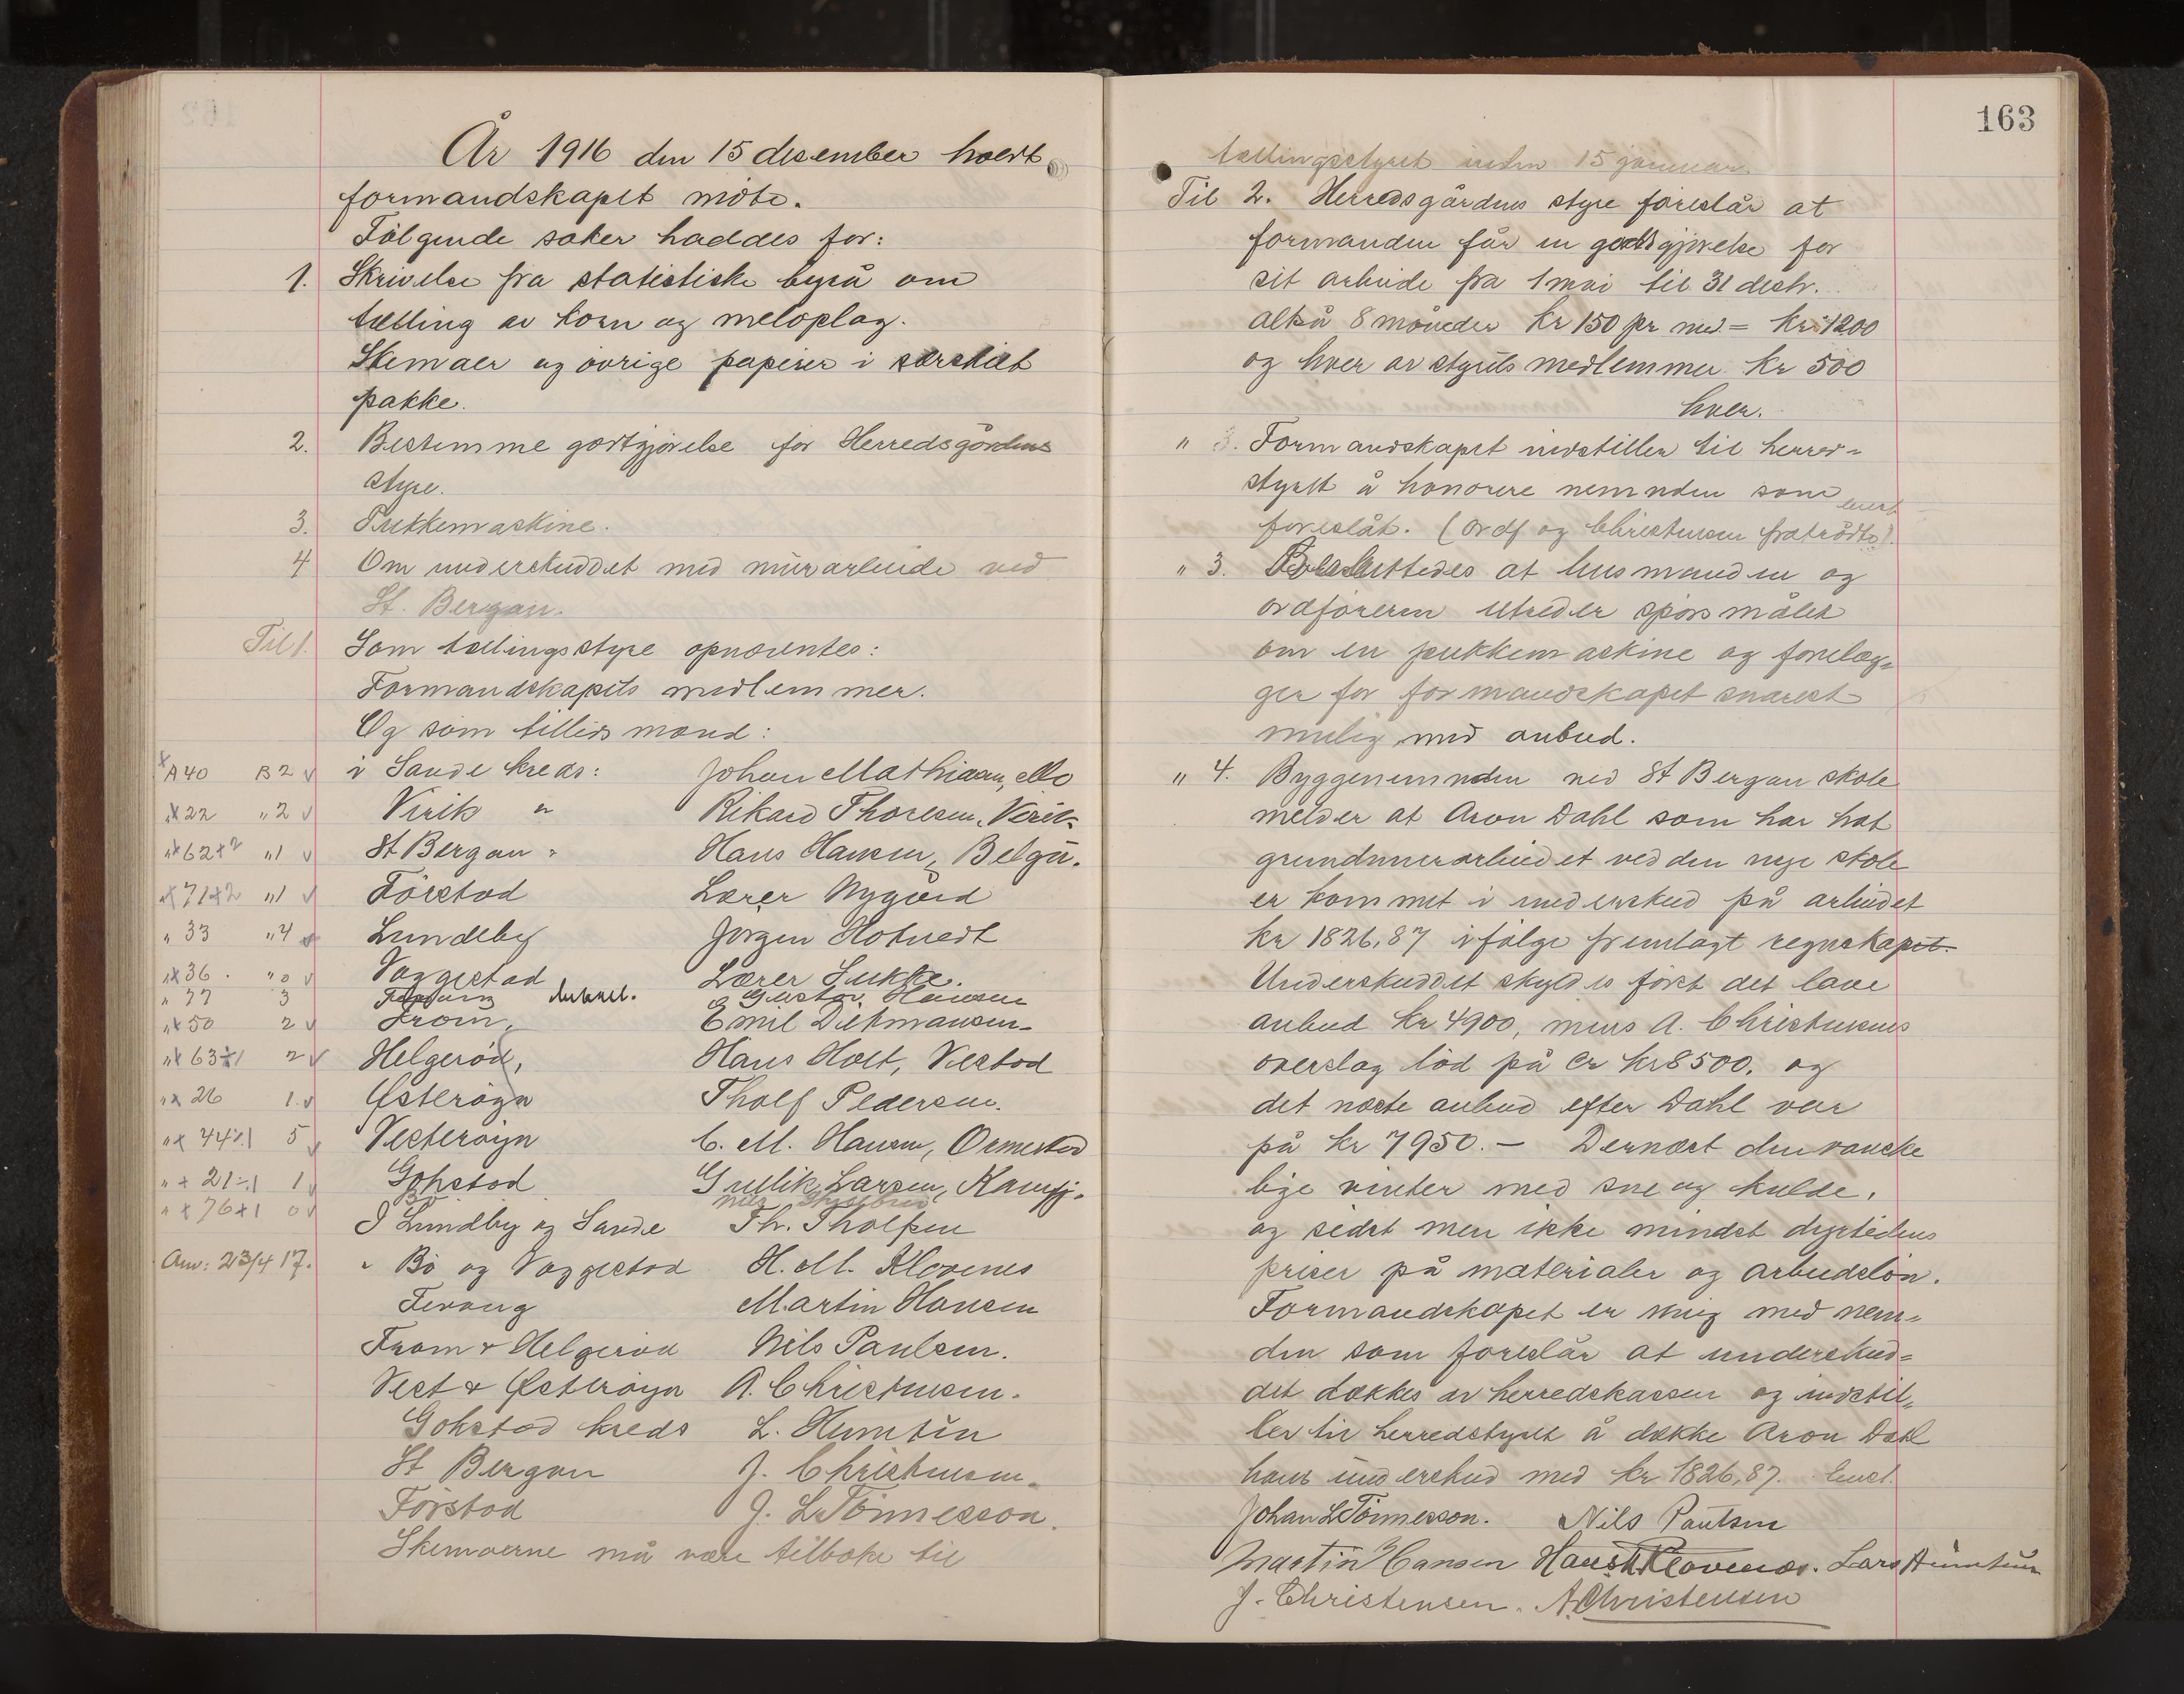 År 1916 den 15 desember holdt
formandskapet møte.
Følgende saker haddes for:
1. Skrivelse fra statistiske byrå om
tælling av korn og meloplag.
Skemaer og øvrige papirer i særskilt
pakke.
2. Bestemme godtgjørelse for Herredsgårdens
styre.
3. Pukkemaskine.
4 Om underskuddet med murarbeide ved
St. Bergan.
Til 1. Som tællingsstyre opnævntes:
Formandskapets medlemmer.
Og som tillidsmænd:
A 40 B 2 i Sande kreds: Johan Mathiasen, Mo
" 22 " 2 Virik " Rikard Thoresen, Virik
" 62+2 " 1 St Bergan " Hans Hansen, Belgu.
" 71+2 " 1 Førstad Lærer Nygård
" 33 " 4 Lundeby Jørgen Hotvedt
" 36 " 0 Vaggestad Lærer Lukke.
" 77 3 Gustav Hansen
" 50 2 From, Emil Ditmansen
" 63÷1 2 Helgerød, Hans Holt, Vestad
" 26 1 Østerøyn Tholf Pedersen.
" 44÷1 5 Vesterøyn C. M. Hansen, Ormestad
" 21÷1 1 Gokstad Gullik Larsen, Kamfj.
" 76+1 0 Bø Nils
I Lundby og Sande Th. Tholfsen
Anv: 23/4 17. " Bø og Vaggestad H. M. Klavenes
Fevang Martin Hansen
From & Helgerød Nils Paulsen.
Vest & Østerøyn A. Christensen.
Gokstad kreds L. Hunstun
St Bergan J. Christensen.
Førstad J. L. Tønnesson.
Skemaerne må være tilbake til
163
tællingsstyret inden 15 januar.
Til 2. Herredsgårdens styre foreslår at
formanden får en godtgjørelse for
sit arbeide fra 1 mai til 31 desbr.
altså 8 måneder kr 150 pr md = kr 1200
og hver av styrets medlemmer kr 500
hver.
" 3. Formandskapet indstiller til herred-
styret å honorere nemnden som
foreslåt. (Ordf og Christensen fratrådte). Enst
" 3. Besluttedes at husmanden og
ordføreren utreder spørsmålet
om en pukkemaskine og forelæg-
ger for formandskapet snarest
mulig med anbud.
" 4. Byggenemnden ved St Bergan skole
melder at Aron Dahl som har hat
grundmurarbeidet ved den nye skole
er kommet i underskud på arbeidet
kr 1826,87 ifølge fremlagt regnskapet.
Underskuddet skyldes først det lave
anbud kr 4900, mens A. Christensens
overslag lød på Cr kr 8500. og
det næste anbud efter Dahl var
på kr 7950.- Dernæst den vanske
lige vinter med sne og kulde,
og sidst men ikke mindst dyrtidens
priser på materialer og arbeidsløn.
Formandskapet er enig med nem-
den som foreslår at underskud-
det dækkes av herredskassen og indstil-
ler til herredstyret å dække Aron Dahl
hans underskud med kr 1826,87. Enst.
Johan L Tønnesson. Nils Paulsen
Martin Hansen Hans M Klavenes. Lars Hunstun
J. Christensen. A. Christensen